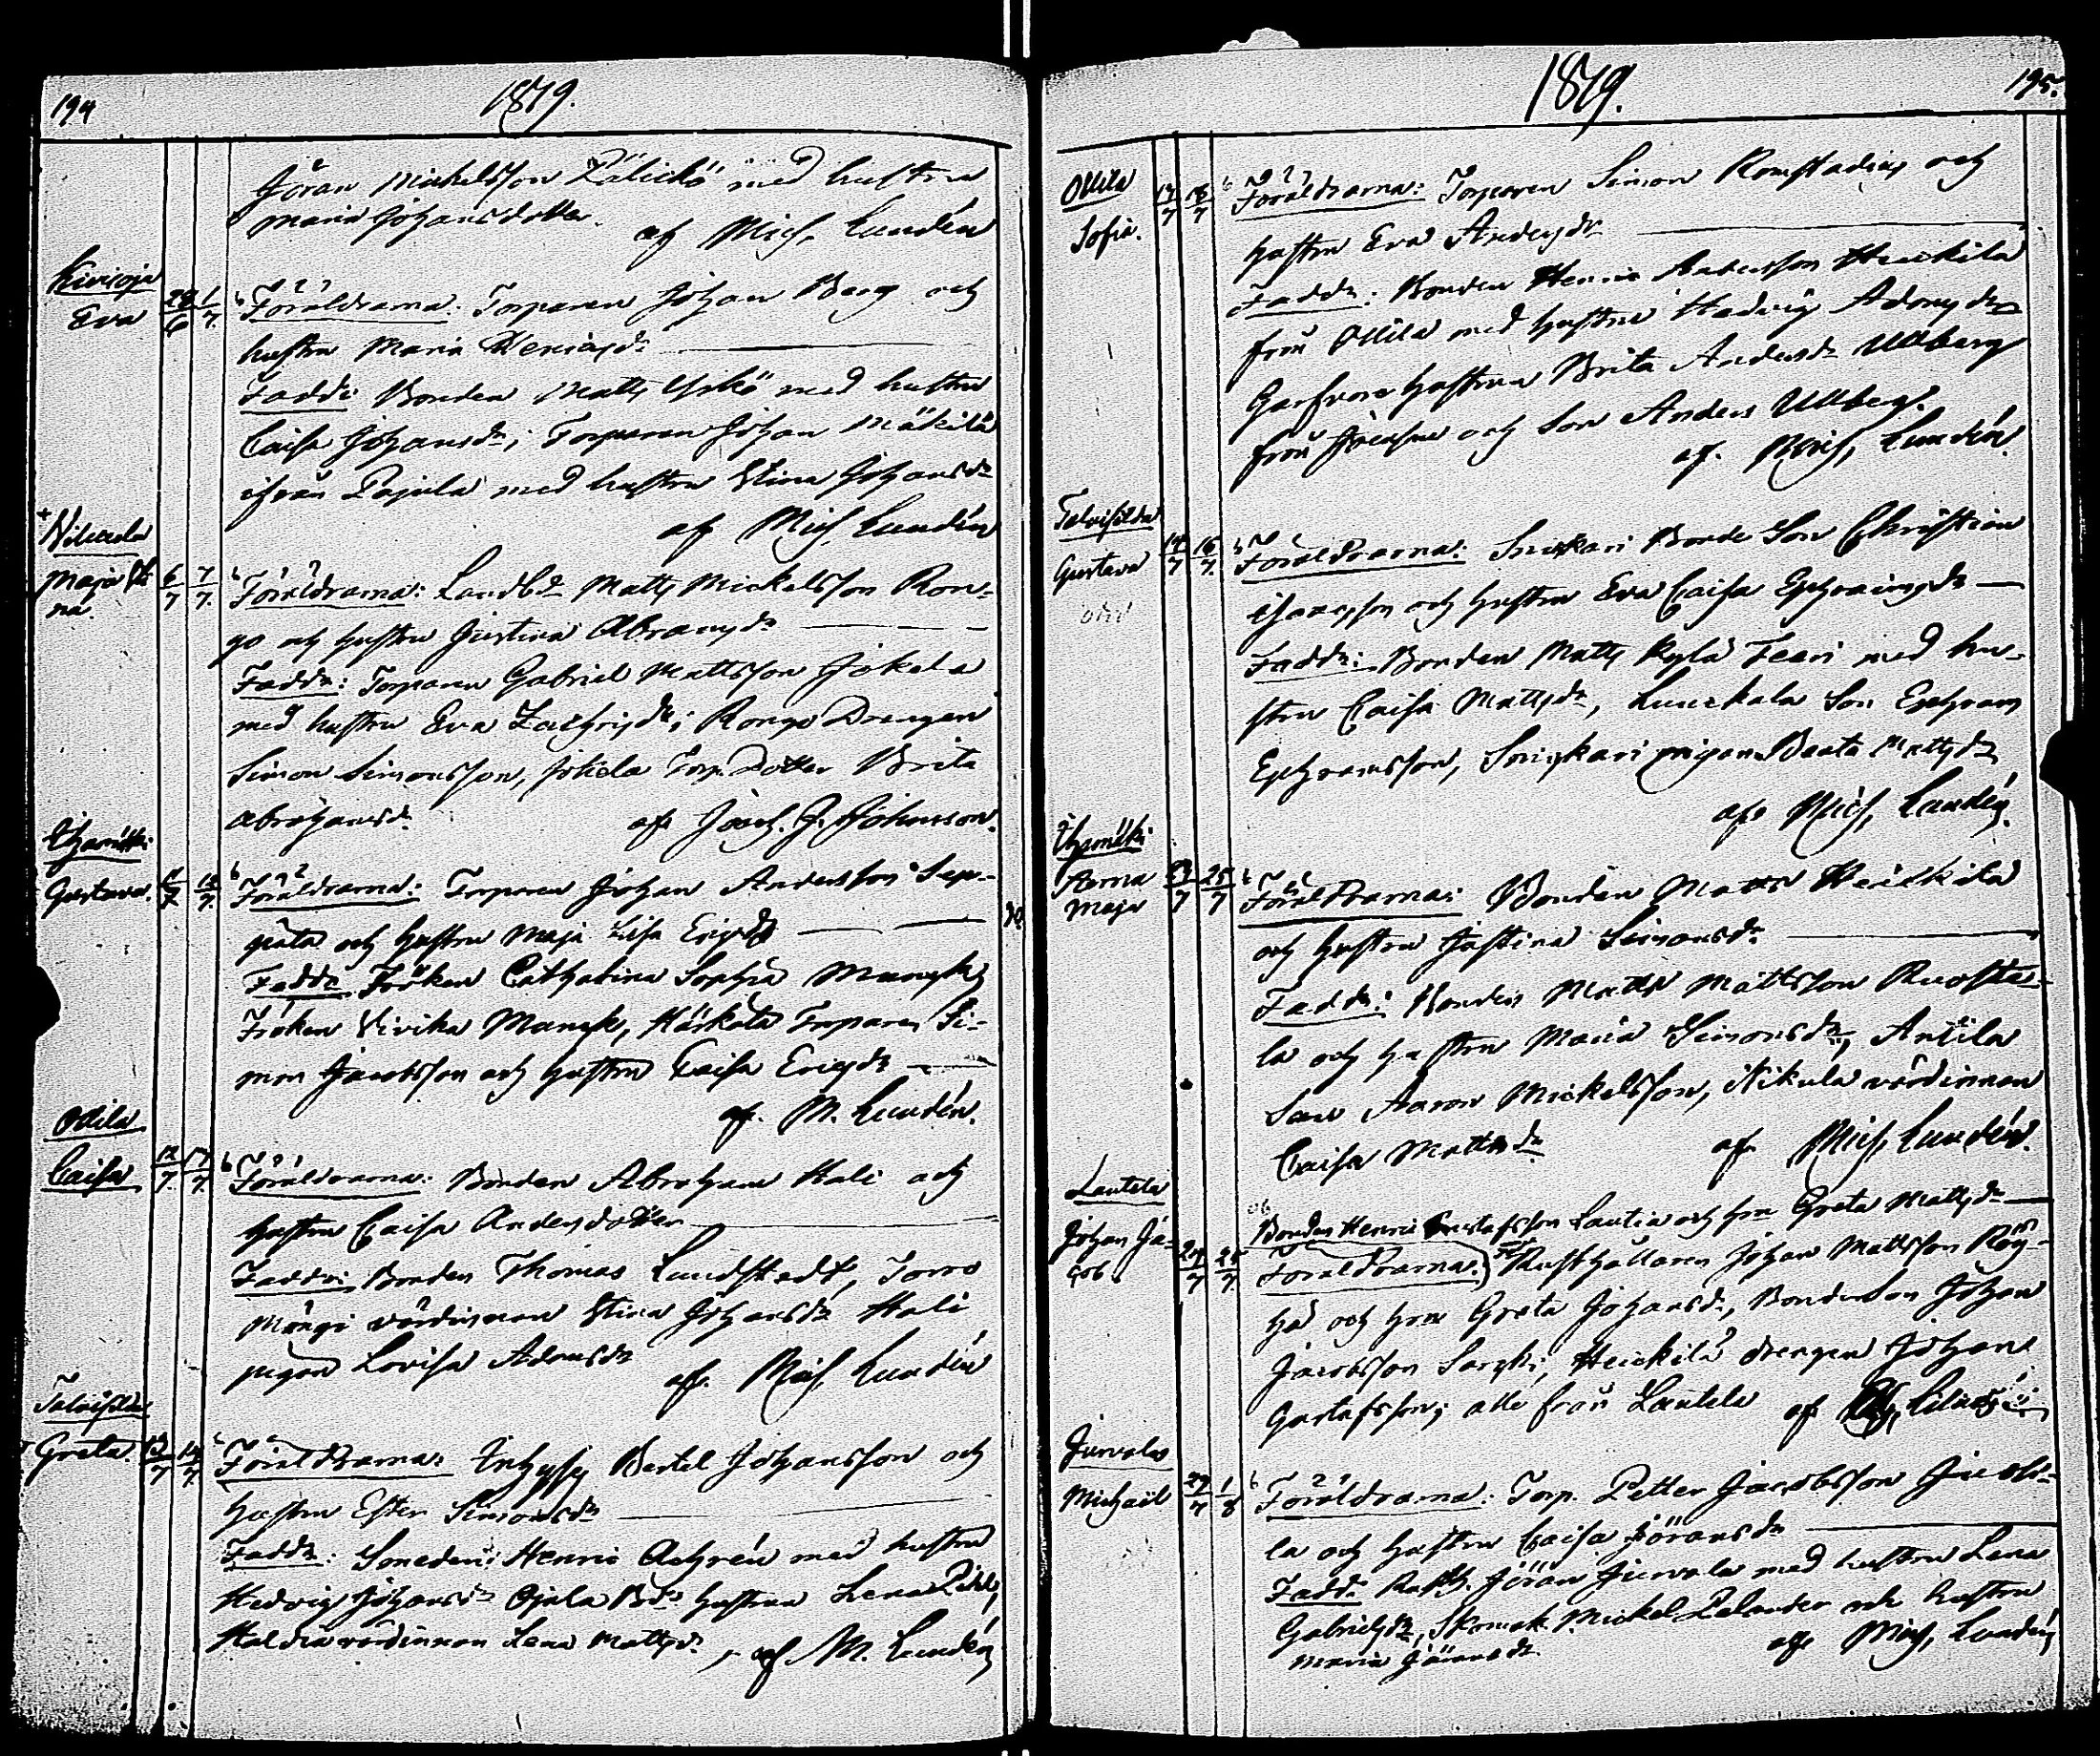 194
1819.
Jöran Mickelsson Pälickö med hustru
Maria Johansdotter.
af Mich. Lundén
Kivioja
Eva
28/6 1/7.
Föräldrarna: Torparen Johan Berg och
hustru Maria Henricsdr
Faddr: Bonden Matts Yrkö med hustru
Caisa Johansdr; Torparen Johan Mäkilä
ifrån Pajula med hustru Stina Johansdr
af Mich. Lundén
+ Nikula
Maja Sti
na.
6/7 7/7.
Föräldrarna: Landb. Matts Mickelsson Ron-
go och hustru Justina Abramsdr
Faddr: Torparen Gabriel Mattsson Jokela
med hustru Eva Zachrisdr; Rongo Drengen
Simon Simonsson, Jokela Torp. Dotter Brita
Abrahamsdr.
af Joach. J. Johnsson.
Gustava.
Föräldrarna: Torparen Johan Andersson Sep-
pälä och hustru Maja Lisa Ericsdr
Faddr Fröken Catharina Sophia Munck,
Fröken Vivika Munck, Härkälä Torparen Si-
mon Jacobsson och hustru Caisa Ericsdr
af. M. Lundén.
Ollila
Caisa
12/7. 13/7.
Föräldrarna: Bonden Abraham Hali och
hustru Caisa Andersdotter
Faddr: Bonden Thomas Lundstedt, Torro
Mängi värdinnan Stina Johansdr Hali
pigan Lovisa Adamsdr
af. Mich. Lundén
Talvisilda
Greta.
13/7 14/7.
Föräldrarna: Inhyses Bertel Johansson och
hustru Ester Simonsdr
Faddr: Smeden Henric Achrén med hustru
Hedvig Johansdr Ojala Bd. hustrun Lena Pihl,
Haldia värdinnan Lena Mattsdr.
af M. Lundén
1819.
195.
Ollila
Sofia.
Föräldrarna: Torparen Simon Romstadius och
hustru Eva Andersdr
Faddr: Bonden Henric Andersson Heickilä
från Ollila med hustru Hedvig Adamsdr
Garfvare hustrun Brita Andersdr Ullberg
från och Son Anders Ullberg.
af. Mich. Lundén.
Talvisilda
Gustava
14/7 16/7.
Föräldrarna: Snickari Bonde Son Christian
Isacsson och hustru Eva Caisa Ephraimsdr
Faddr: Bonden Matts Kylä Teeri med hu-
stru Caisa Mattsdr, Son Ephraim
Ephraimsson, pigan Beata Mattsdr
af. Mich. Lundén.
Anna
Maja
Föräldrarna: Bonden Matts Heickilä
och hustru Justina Simonsdr
Faddr: Bonden Matts Mattsson Ruoste-
la och hustru Maria Simonsdr, Antila
Son Aaron Mickelsson, Nikula värdinnan
Caisa Mattsdr
af. Mich. Lundén.
Lautela
Johan Ja-
cob.
24/7 25/7.
Bonden Henric Gustafsson Lautia och hon Greta Mattsdr
Föräldrarna. Rusthållaren Johan Mattsson Röy-
hä och hon Greta Johansdr, Bonde Son Johan
Jacobsson Heickilä drengen Johan
Gustafsson; alla från Lautela af
Jurvala
Michaël
29/7 1/8
Föräldrarna: Torp. Petter Jacobsson
la och hustru Caisa Göransdr
Faddr. Rusth. Jöran Jurvala med hustru Lena
Gabrielsdr, Skomak. Mickel Pelander och hustru
Maria Göransdr.
af Mich. Lundén